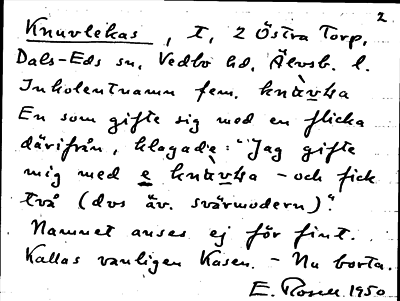 2
Knuvlekas, t, 2 Östra Torp,
Dals-Eds sn, Vedbo hd, Älvsb. l.
Inkolentnamn fem. knàvka
En som gifte sig med en flicka
därifrån, klagade: "Jag gifte
mig med e knàvka - och fick
två (dvs äv. svärmodern)".
Namnet anses ej för fint.
Kallas vanligen Kasen. - Nu borta.
E. Rosell 1950